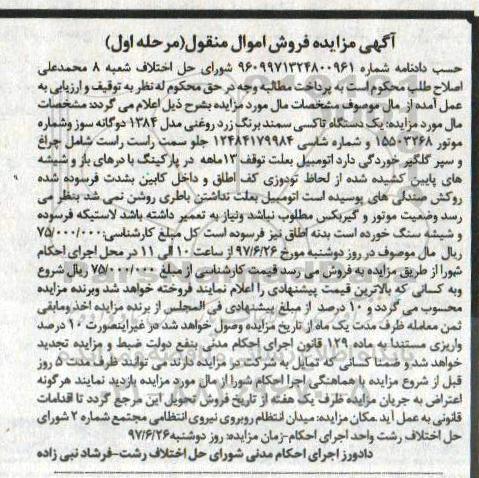 آگهی مزایده فروش اموال منقول(مرحله اول)
حسب دادنامه شماره ۹۶۰۹۹۷۱۳۲۴۸۰۰۹۶۱ شورای حل اختلاف شعبه ۸ محمدعلی
اصلاح طلب محکوم است به پرداخت مطالبه وجه در حق محکوم له نظر به توقیف و ارزیابی به
عمل آمده از مال موصوف مشخصات مال مورد مزایده بشرح ذیل اعلام می گردد: مشخصات
مال مورد مزایده: یک دستگاه تاکسی سمند برنگ زرد روغنی مدل ۱۳۸۴ دوگانه سوز وشماره
موتور ۱۵۵۰۳۲۶۸ و شماره شاسی ۱۲۴۸۴۱۷۹۹۸۴ جلو سمت راست راست شامل چراغ
و سپر گلگیر خوردگی دارد اتومبیل بعلت توقف ۱۳ماهه در پارکینگ با درهای باز و شیشه
های پایین کشیده شده از لحاظ تودوزی کف اطاق و داخل کابین بشدت فرسوده شده
روکش صندلی های پوسیده است اتومبیل بعلت نداشتن باطری روشن نمی شد بنظر می
رسد وضعیت موتور و گیربکس مطلوب نباشد ونیاز به تعمیر داشته باشد لاستیکه فرسوده
و شیشه سنگ خورده است بدنه اطاق نیز فرسوده است کل مبلغ کارشناسی:۷۵/۰۰۰/۰۰۰
ریال مال موصوف در روز دوشنبه مورخ ۹۷/۶/۲۶ از ساعت ۱۰ الی ۱۱ در محل اجرای احکام
شورا از طریق مزایده به فروش می رسد قیمت کارشناسی از مبلغ ۷۵/۰۰۰/۰۰۰ ریال شروع
وبه کسانی که بالاترین قیمت پیشنهادی را اعلام نمایند فروخته خواهد شد وبرنده مزایده
محسوب می گردد و ۱۰ درصد از مبلغ پیشنهادی فی المجلس از برنده مزایده اخذ ومابقی
ثمن معامله ظرف مدت یک ماه از تاریخ مزایده وصول خواهد شد در غیراینصورت ۱۰ درصد
واریزی مستندا به ماده ۱۲۹ قانون اجرای احکام مدنی بنفع دولت ضبط و مزایده تجدید
خواهد شد و ضمنا کسانی که تمایل به شرکت در مزایده دارند می توانند ظرف مدت ۵ روز
قبل از شروع مزایده با هماهنگی اجرا احکام شورا از مال مورد مزایده بازدید نمایند هرگونه
اعتراض به جریان مزایده ظرف یک هفته از تاریخ فروش تحویل این مرجع گردد تا اقدامات
قانونی به عمل آید .مکان مزایده: میدان انتظام روبروی نیروی انتظامی مجتمع شماره ۲ شورای
حل اختلاف رشت واحد اجرای احکام-زمان مزایده: روز دوشنبه۹۷/۶/۲۶
دادورز اجرای احکام مدنی شورای حل اختلاف رشت-فرشاد نبی زاده